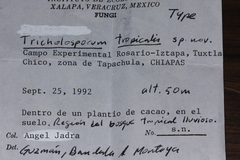 INSTITUTO DE ECOL
XALAPA, VERACRUZ, MEXICO
FUNGI
Type
Tricholosporum tropicalis sp nov.
Campo Experimental Rosario-Iztapa, Tuxtla
Chico, zona de Tapachula, CHIAPAS
Sept. 25, 1992 alt. 50m
Dentro de un plantio de cacao, en el
suelo. Región del bosque tropical lluvioso.
Col. Angel Jadra No. s.n.
Det. Guzmán, Bandala & Montoya